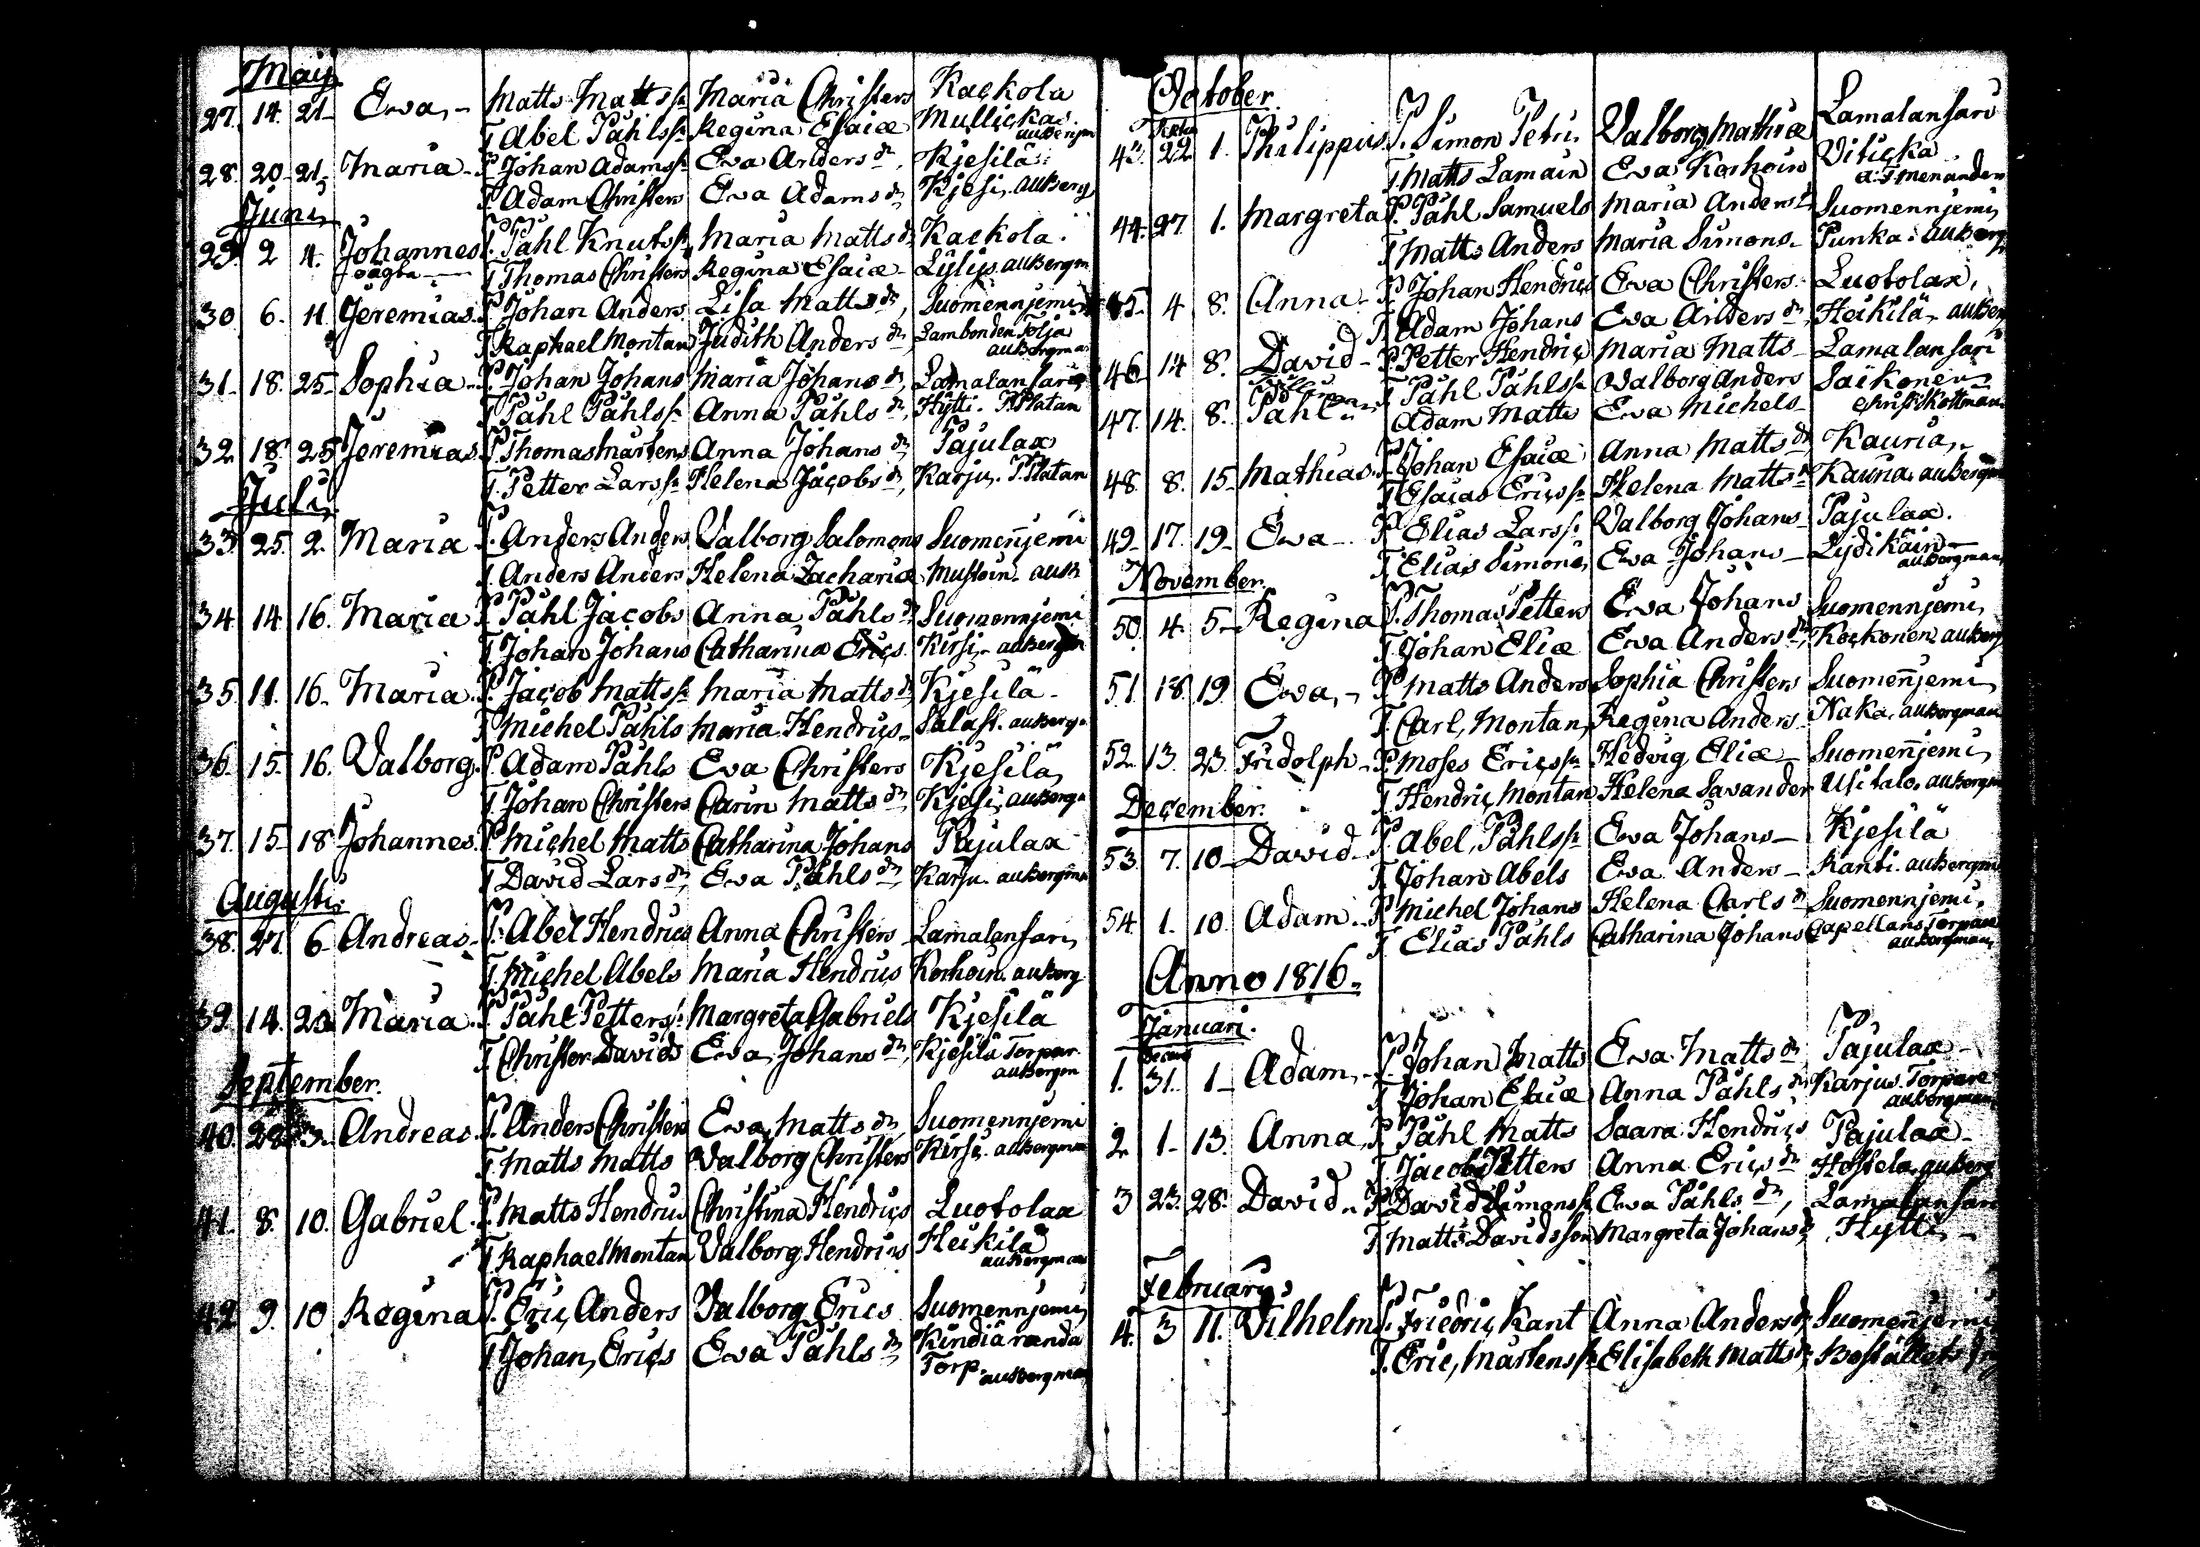 Maij
27. 14. 21. Ewa, - Matts Mattss: Maria Christers Kackola
T Abel Påhlss: Regina Esaiæ Mullickas. auBergm
28. 20. 21. Maria - P Johan Adamss: Eva Anders dr, Kjesilä.
T Adam Christers Eva Adams dr, Kjesi, auBerg
Juni,
29. 2 4. Johannes P. Påhl Knutss: Maria Matts dr Kackola.
oägta T Thomas Christers Regina Esaiæ - Lylys. auBergm
30 6. 11. Jeremias. P Johan Anders Lisa Matts dr, Suomennjemi
T Raphael Montan Judith Anders dr, Lambonden Tolja
auBergman
31. 18. 25. Sophia - P. Johan Johans Maria Johans dr, Lamalansari
T Påhl Påhlss: Anna Påhls dr, Hytti. P. Platan
32. 18. 25. Jeremias. P Thomas Mårtens Anna Johans dr Pajulax
T. Petter Larss: Helena Jacobs dr, Karju. P. Platan
Juli,
33. 25. 2. Maria P. Anders Anders Valborg Salomons Suomennjemi
T. Anders Anders Helena Zachariæ Mustoin. auB
34. 14. 16. Maria P Påhl Jacobs Anna Påhls dr Suomennjemi
T. Johan Johans Catharina Erics Kirsi, - auBergm
35. 11. 16. Maria. P. Jacob Mattss: Maria Matts dr Kjesilä -
T Michel Påhls Maria Hendrics - Salast. auBergm
36. 15. 16. Valborg. P. Adam Påhls Eva Christers Kjesilä,
T Johan Christers Carin Matts dr, Kjesi, auBergm
37. 15. 18 Johannes. P Michel Matts Catharina Johans Pajulax
T David Lars Eva Påhls dr, Karju. auBergman
Augusti,
38. 27. 6. Andreas - P. Abel Hendrics Anna Christers Lamalansari,
T. Michel Abels Maria Hendrics Korhoin. auBerg
39. 14. 20. Maria. P Påhl Petters: Margreta Gabriels Kjesilä
T. Christer Davids Eva Johans dr, Kjesilä Torpar.
auBergm
September.
40. 28. 3. Andreas. P. Anders Christers Eva Matts dr, Suomennjemi
T. Matts Matts Valborg Christers Kirsi. auBergman
41. 8. 10. Gabriel. P. Matts Hendrics Christina Hendrics Luotolax
T Raphael Montan Valborg Hendrics Heikilä
auBergman
42. 9. 10 Regina P. Eric Anders Valborg Erics Suomennjemi,
T Johan, Erics Eva Påhls dr, Kindiä randa
Torp. auBergman
October.
43. 22. 1. Philippus. P. Simon Petri, Valborg Mathiæ Lamalansari
T. Matts Lamain Eva Korhoin Viticka
44. 27. 1. Margreta P. Påhl Samuels Maria Anders dr, Suomennjemi,
T Matts Anders Maria Simons - Punka. auBerg
45. 4 8. Anna. P. Johan Hendrics Eva Christers Luotolax,
T. Adam Johans Eva Anders dr, Heikilä, auBerg
46. 14 8. David - P. Petter Hendric Maria Matts - Lamalansari
T Påhl Påhlss: Valborg Anders Saikonen
47. 14. 8. Påhl Adam Matts Eva Michels - Christ. Kottman
48. 8. 15. Mathias. P. Johan Esaiæ Anna Matts dr Kauria,
T Esaias Ericss: Helena Matts dr Kauria. auBergm
49. 17. 19. Ewa P Elias Larss: Valborg Johans - Pajulax.
T Elias Simons, Eva Johans - Lydikäin
auBergman
November.
50. 4. 5. Regina P. Thomas Petters Eva Johans Suomennjemi,
T Johan Eliæ Eva Anders dr, Kockonen auBerg
51. 18. 19. Ewa, - P Matts Anders Sophia Christers Suomennjemi,
T. Carl, Montan, Regina Anders Naka. auBergman
52. 13. 23. Fridolph - P. Moses Ericss: Hedvig Eliæ Suomennjemi,
T Hendric Montan Helena Savander Usitalo, auBergm
December.
53. 7. 10. David - P. Abel, Påhlss: Eva Johans - Kjesilä
T. Johans Abels Eva Anders - Kanti. auBergm
54. 1. 10. Adam. P Michel Johans Helena Carls dr Suomennjemi,
T Elias Påhls Catharina Johans Capellans Torpare
auBergman
Anno 1816.
Januari.
1. 31. 1. Adam, - P. Johan Matts Eva Matts dr Pajulax -
T Johan Esaiæ Anna Påhls dr Karjus. Torpare
auBergman
2. 1. 13. Anna, P. Påhl Matts Saara Hendrics Pajulax -
T Jacob Petters Anna Erics dr Hostela, auBerg
3 23. 28. David. P David Simonss: Eva Påhls dr, Lamalansari
T Matts Davidsson Margreta Johans dr, Hytti, -
Februarij
4. 3 11. Vilhelm P. Friedric Kant Anna Anders dr, Suomennjemi
T. Eric, Mårtenss: Elisabeth Matts dr, Boställets